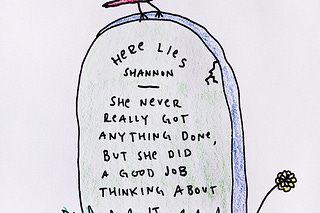 HERE LIES
SHANNON
SHE NEVER
REALLY GOT
ANYTHING DONE,
BUT SHE DID
A GOOD JOB
THINKING ABOUT
IT